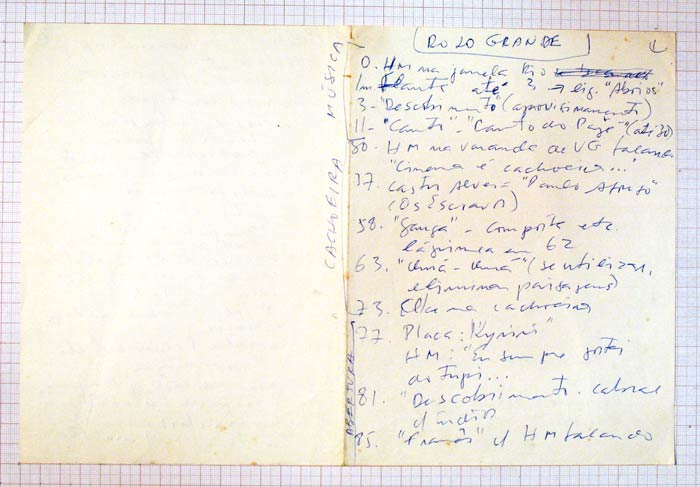 ROLO GRANDE
0. HM na janela Rio
1m. até 3 → lig. "Abrios"
3 - "Descobrimento" (aproveitamento)
11 - "Canti" - "Canto do Pajé" - (até 30)
30 - HM na varanda de VG falando
"Cinema é cachoeira..."
37. Castro Alves = "Paulo Afonso"
(Os Escravos)
58. "Ganga" - comporte etc.
lágrimas em 62
63. "Uná - Uná" (se utilizar,
eliminar paisagens)
73. Ela na cachoeira
77. Placa:
HM: "Eu sempre gostei
do tupi...
81. "Descobrimento. Cabral
c/ índios
85. c/ HM falando
CACHOEIRA MÚSICA
ABERTURA